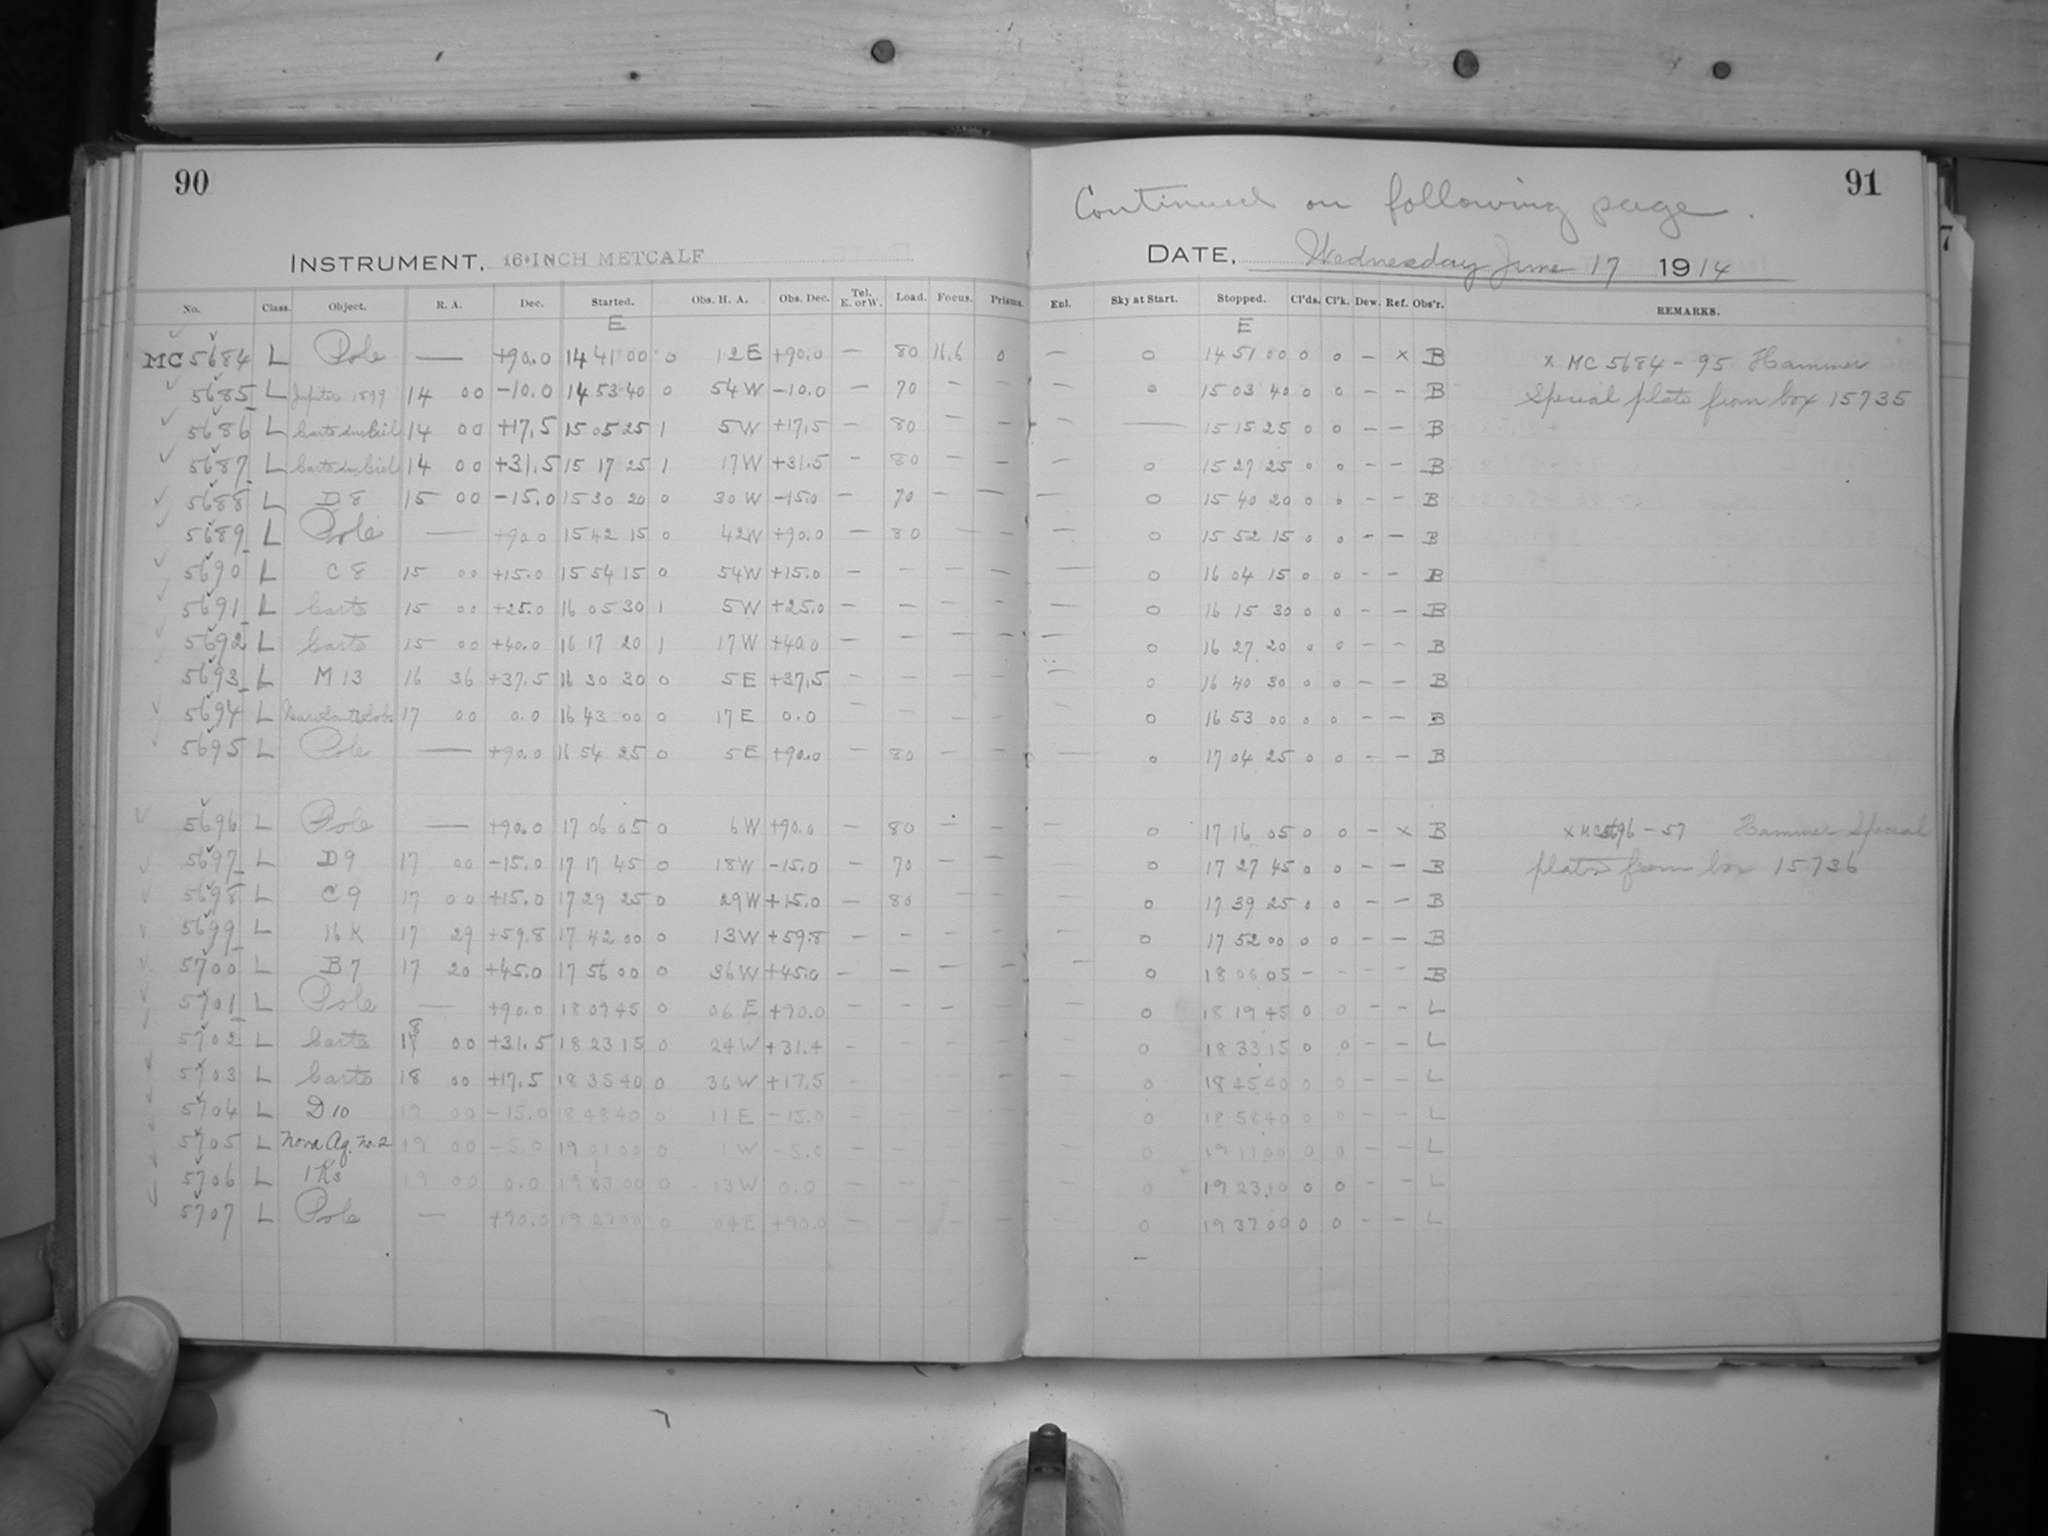 90
91
Continued on following page.
INSTRUMENT, 16-INCH METCALF
DATE, Wednesday June 17 1914
No. Class. Object. R. A. Dec. Started. Obs. H. A. Obs. Dec. Tel. E. or W. Load. Focus. Prisms. Enl. Sky at Start. Stopped. Cl'ds. Cl'k. Dew. Ref. Obs'r. REMARKS.
E E
MC 5684 L Pole — +90.0 14 41 00 0 12 E +90.0 — 80 16.6 0 — 0 14 51 00 0 0 — x B x MC 5684-95 Hammer
5685 L Jupiter 1899 14 00 -10.0 14 53 40 0 54 W -10.0 — 70 — — — 0 15 03 40 0 0 — — B Special plate from box 15735
5686 L Carte du Ciel 14 00 +17.5 15 05 25 1 5 W +17.5 — 80 — — — — 15 15 25 0 0 — — B
5687 L Carte du Ciel 14 00 +31.5 15 17 25 1 17 W +31.5 — 80 — — — 0 15 27 25 0 0 — — B
5688 L D 8 15 00 -15.0 15 30 20 0 30 W -15.0 — 70 — — — 0 15 40 20 0 0 — — B
5689 L Pole — +90.0 15 42 15 0 42 W +90.0 — 80 — — — 0 15 52 15 0 0 — — B
5690 L C 8 15 00 +15.0 15 54 15 0 54 W +15.0 — — — — — 0 16 04 15 0 0 — — B
5691 L Carte 15 00 +25.0 16 05 30 1 5 W +25.0 — — — — — 0 16 15 30 0 0 — — B
5692 L Carte 15 00 +40.0 16 17 20 1 17 W +40.0 — — — — — 0 16 27 20 0 0 — — B
5693 L M 13 16 36 +37.5 16 30 30 0 5 E +37.5 — — — — — 0 16 40 30 0 0 — — B
5694 L 17 00 0.0 16 43 00 0 17 E 0.0 — — — — — 0 16 53 00 0 0 — — B
5695 L Pole — +90.0 16 54 25 0 5 E +90.0 — 80 — — — 0 17 04 25 0 0 — — B
5696 L Pole — +90.0 17 06 05 0 6 W +90.0 — 80 — — — 0 17 16 05 0 0 — x B x MC 5696-57 Hammer Special
5697 L D 9 17 00 -15.0 17 17 45 0 18 W -15.0 — 70 — — — 0 17 27 45 0 0 — — B plates from box 15736
5698 L C 9 17 00 +15.0 17 29 25 0 29 W +15.0 — 80 — — 0 17 39 25 0 0 — — B
5699 L 16 K 17 29 +59.8 17 42 00 0 13 W +59.8 — — — — — 0 17 52 00 0 0 — — B
5700 L B 7 17 20 +45.0 17 56 00 0 36 W +45.0 — — — — — 0 18 06 05 — — — — B
5701 L Pole — +90.0 18 09 45 0 06 E +90.0 — — — — — 0 18 19 45 0 0 — — L
5702 L Carte 18 00 +31.5 18 23 15 0 24 W +31.4 — — — — — 0 18 33 15 0 0 — — L
5703 L Carte 18 00 +17.5 18 35 40 0 36 W +17.5 — — — — — 0 18 45 40 0 0 — — L
5704 L D 10 19 00 -15.0 18 48 40 0 11 E -15.0 — — — — — 0 18 58 40 0 0 — — L
5705 L Nova Aq. No. 2 19 00 -5.0 19 01 00 0 1 W -5.0 — — — — — 0 19 11 00 0 0 — — L
5706 L 1 Ks 19 00 0.0 19 13 00 0 13 W 0.0 — — — — — 0 19 23 10 0 0 — — L
5707 L Pole — +90.0 19 27 00 0 04 E +90.0 — — — — — 0 19 37 00 0 0 — — L